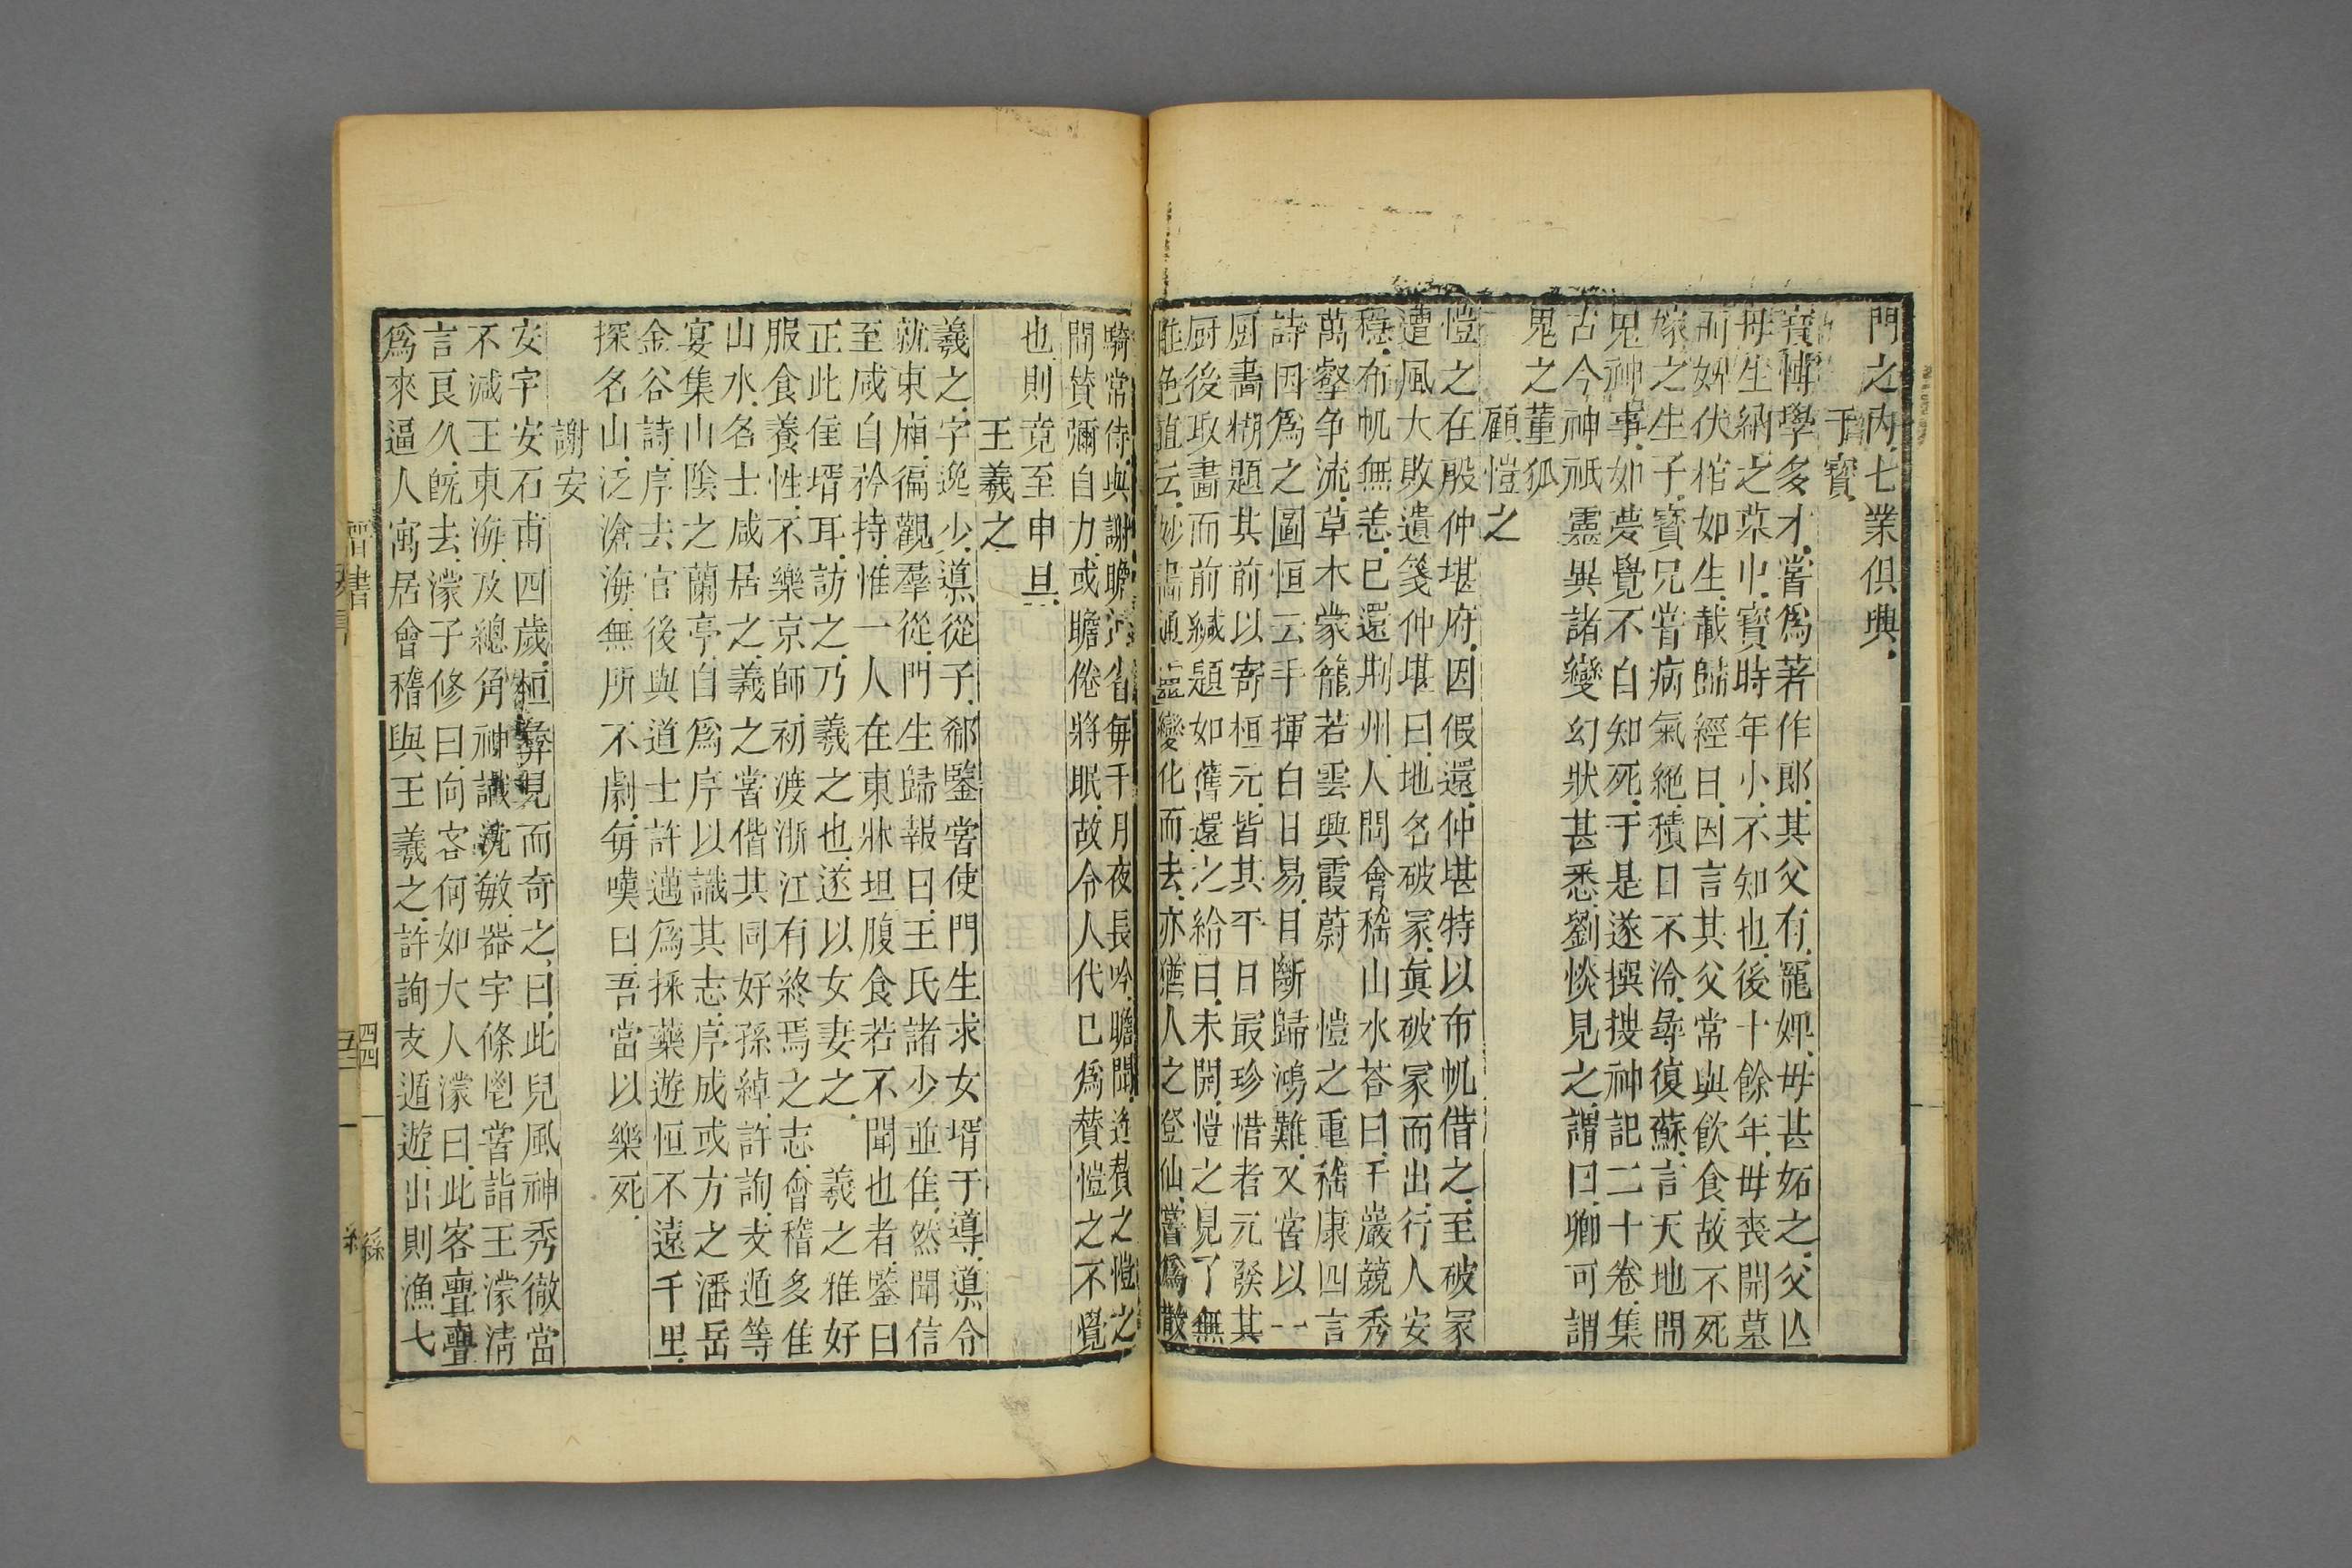 門之內七業俱興
干寶
寶博學多才嘗為著作郎其父有寵婢母甚妬之父亡
母生納之于中寶時年小不知也後十餘年母喪開墓
而婢伏棺如生載歸經日因言其父常與飲食故不死
嫁之生子寶兄嘗病氣絕積日不冷尋復蘇言天地間
鬼神事如夢覺不自知死于是遂撰搜神記二十卷集
古今神祇靈異諸變幻狀甚悉劉惔見之謂曰卿可謂
鬼之董狐
顧愷之
愷之在殷仲堪府因假還仲堪特以布帆借之至破冢
遭風大敗遺箋仲堪曰地名破冢真破冢而出行人安
穩布帆無恙已還荆州人問會稽山水荅曰千巖競秀
萬壑争流草木蒙籠若雲興霞蔚　愷之重嵇康四言
詩因為之圖恒云手揮白日易目斷歸鴻難又嘗以一
厨畵糊題其前以寄桓元皆其平日最珍惜者元發其
厨後取畵而前緘題如舊還之紿曰未開愷之見了無
難色直云妙畵通靈變化而去亦猶人之登仙嘗為散
騎常侍與謝瞻省每千月夜長吟瞻聞遥贊之愷之
聞贊彌自力或瞻倦將眠故令人代已為贊愷之不覺
也則竟至申旦
王羲之
羲之字逸少導從子郗鑒嘗使門生求女壻于導導令
就東廂徧觀羣從門生歸報曰王氏諸少並佳然聞信
至咸自矜持惟一人在東牀坦腹食若不聞也者鑒曰
正此佳壻耳訪之乃羲之也遂以女妻之　羲之雅好
服食養性不樂京師初渡浙江有終焉之志會稽多佳
山水名士咸居之羲之嘗偕其同好孫綽許詢支遁等
宴集山陰之蘭亭自為序以識其志序成或方之潘岳
金谷詩序去官後與道士許邁為採藥遊恒不遠千里
探名山泛滄海無所不劇每嘆曰吾當以樂死
謝安
安字安石甫四歲桓彝見而奇之曰此兒風神秀徹當
不減王東海及總角神識沈敏器宇條鬯嘗詣王濛淸
言良久旣去濛子修曰向客何如大人濛曰此客亹亹
為來逼人寓居會稽與王羲之許詢支遁遊出則漁弋
晉書
四四